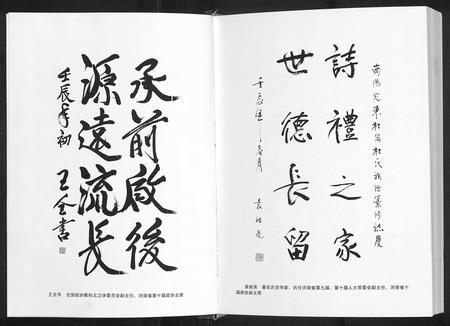 承前啟後
源遠流長
壬辰年初
王全書
王全书　全国政协教科文卫体委员会副主任、河南省第十届政协主席
南陽宛東杜崗杜氏族譜纂修誌慶
詩禮之家
世德長留
袁祖亮
袁祖亮　著名历史学家、历任河南省第九届、第十届人大常委会副主任，河南省十
届政协副主席